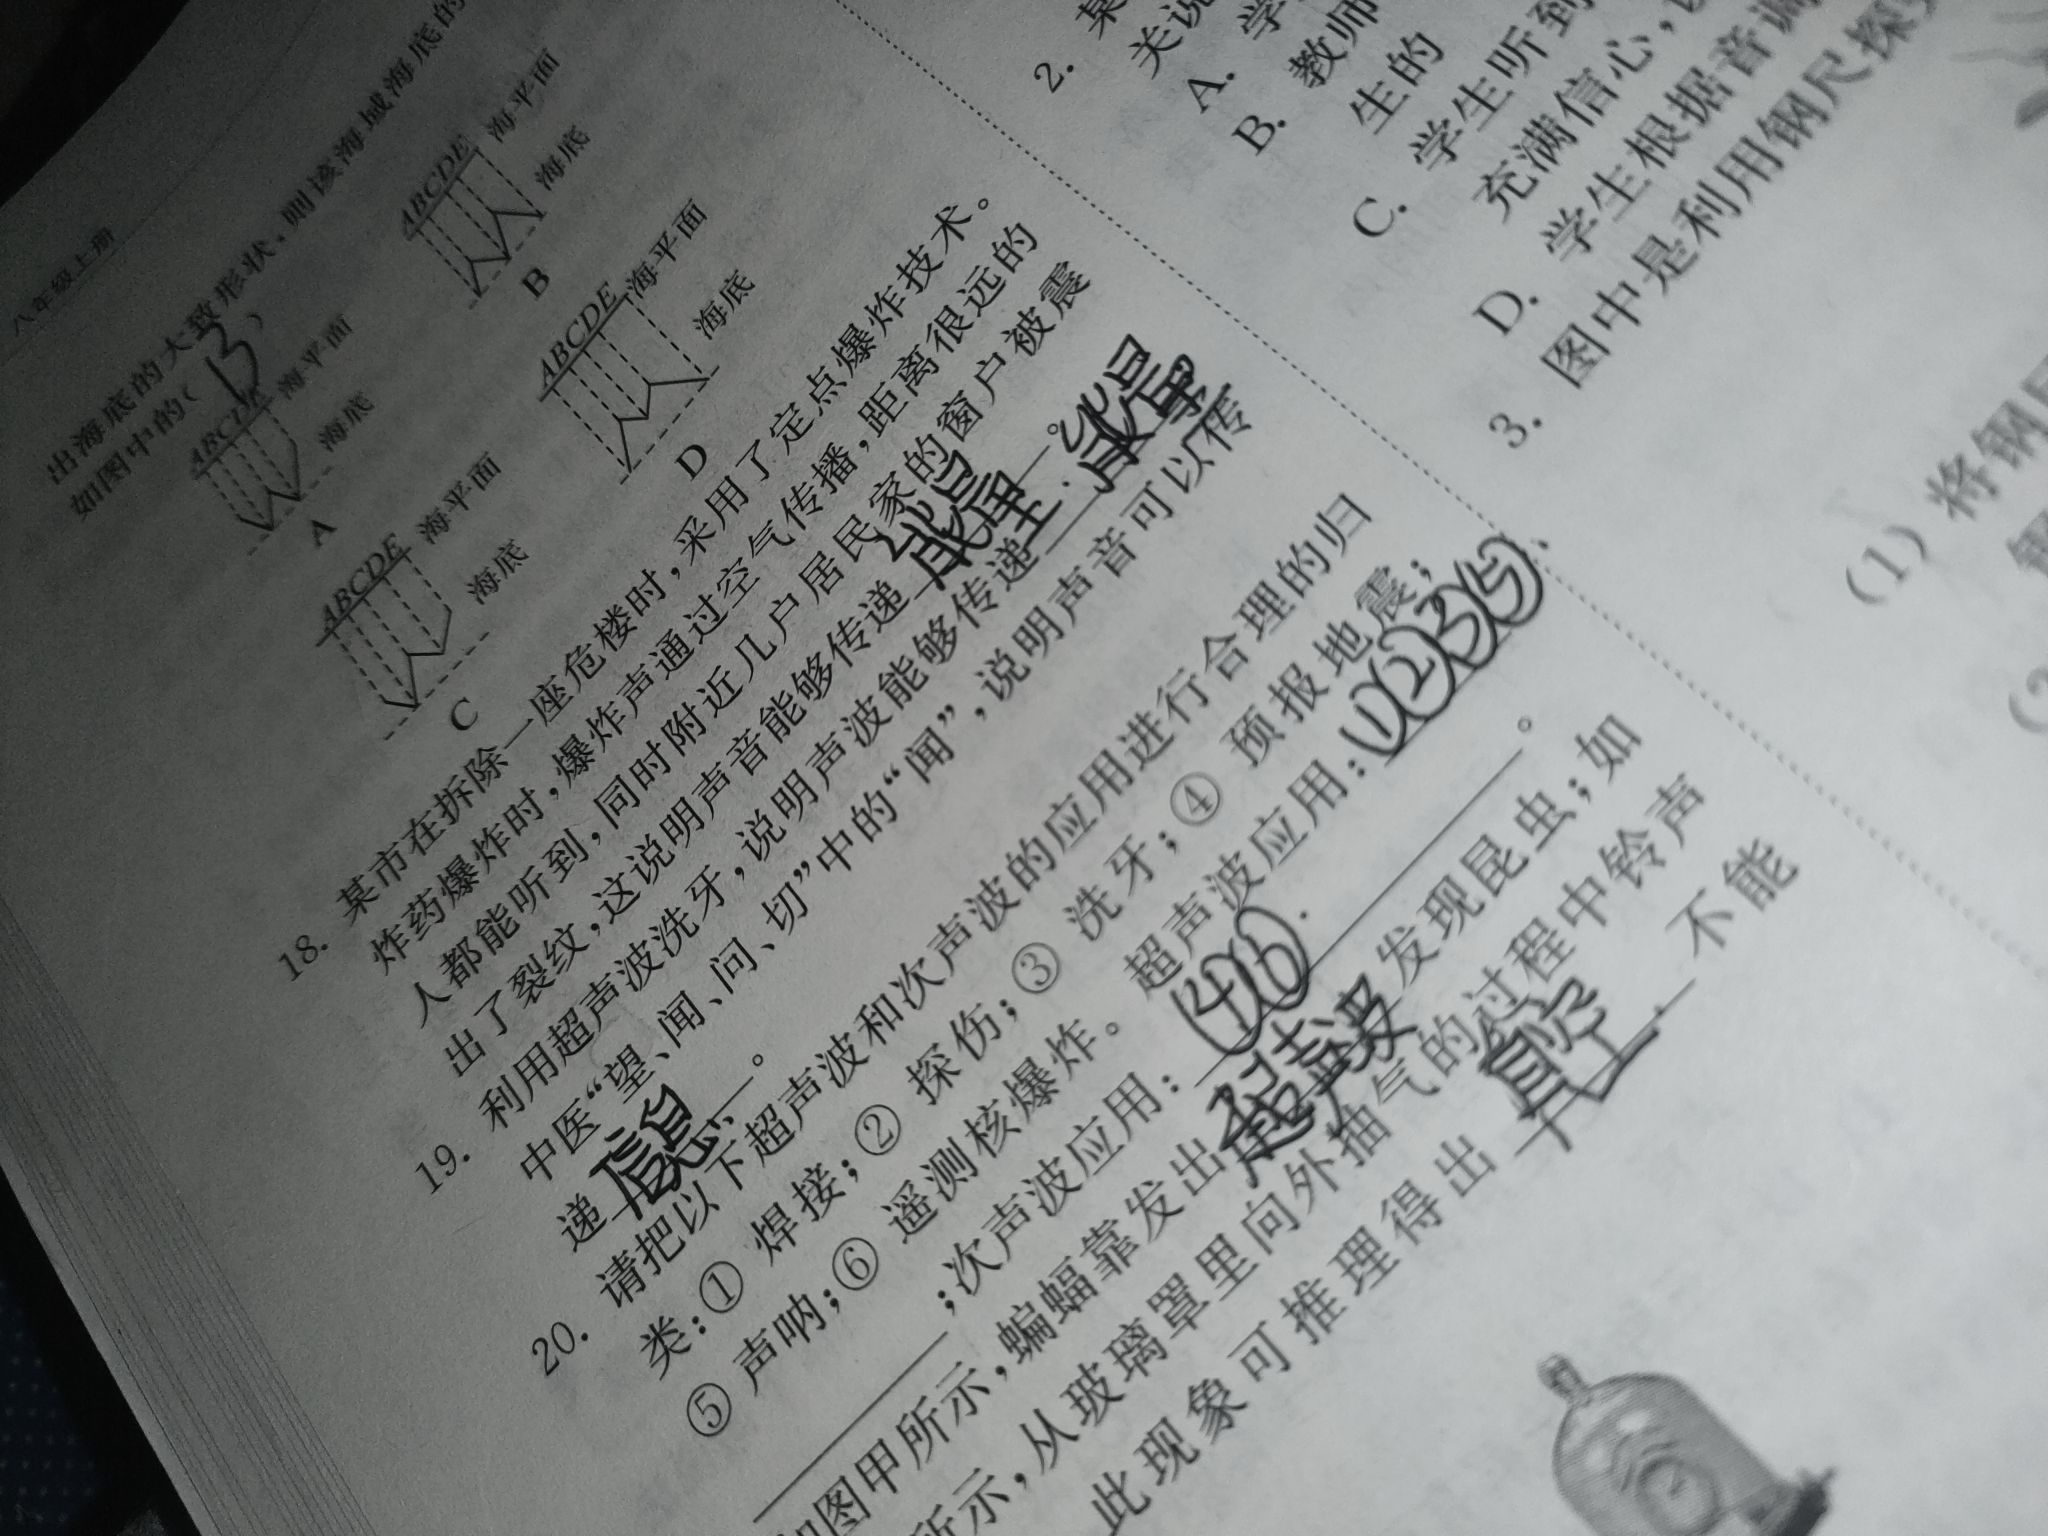 八年级上册
出海底的大致形状，则该海域海底的
如图中的( B )
ABCDE 海平面
海底
A
ABCDE 海平面
海底
B
ABCDE 海平面
海底
C
ABCDE 海平面
海底
D
18. 某市在拆除一座危楼时，采用了定点爆炸技术。
炸药爆炸时，爆炸声通过空气传播，距离很远的
人都能听到，同时附近几户居民家的窗户被震
出了裂纹，这说明声音能够传递 能量 。
19. 利用超声波洗牙，说明声波能够传递 能量 .
中医“望、闻、问、切”中的“闻”，说明声音可以传
递 信息 。
20. 请把以下超声波和次声波的应用进行合理的归
类：① 焊接；② 探伤；③ 洗牙；④ 预报地震；
⑤ 声呐；⑥ 遥测核爆炸。 超声波应用： ①②③⑤
；次声波应用： ④⑥ . 。
如图甲所示，蝙蝠靠发出 超声波 发现昆虫；如
所示，从玻璃罩里向外抽气的过程中铃声
此现象可推理得出 真空 不能
2. 某
关说
A. 学
B. 教师
生的
C. 学生听到
充满信心，
D. 学生根据音调
3. 图中是利用钢尺探
(1) 将钢
(2